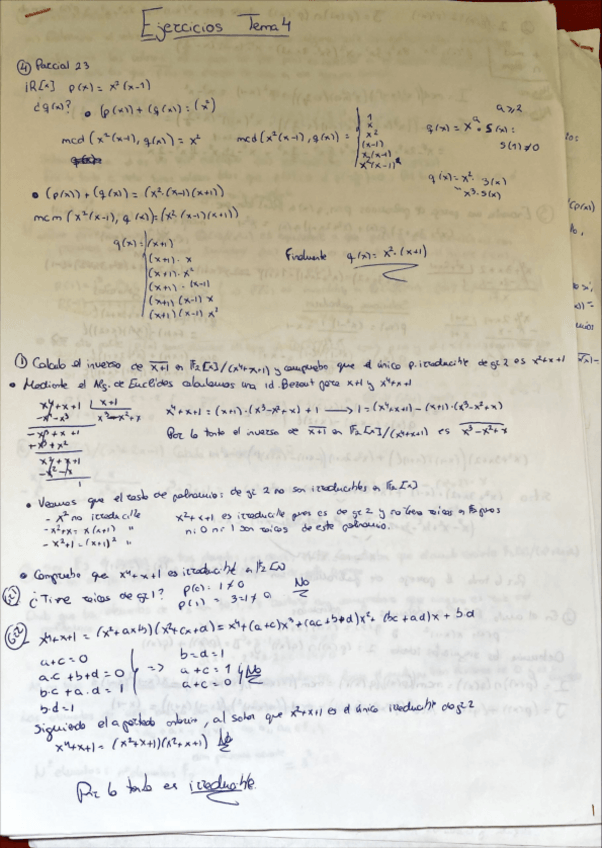 Ejercicios Tema 4
④ Parcial 23
ℝ[x] p(x) = x²(x-1)
¿q(x)? • (p(x)) + (q(x)) = (x²)
mcd (x²(x-1), q(x)) = x²
mcd (x²(x-1), q(x)) =
1
x
x²
(x-1)
x(x-1)
x²(x-1)
a≥2
q(x) = x^a · s(x) :
s(1) ≠ 0
q(x) = x² · s(x)
x³ · s(x)
• (p(x)) ∩ (q(x)) = (x²·(x-1)(x+1))
mcm (x²(x-1), q(x)) = (x²·(x-1)(x+1))
q(x) = (x+1)
(x+1) · x
(x+1) · x²
(x+1) · (x-1)
(x+1) (x-1) x
(x+1) (x-1) x²
Finalmente q(x) = x²·(x+1)
① Calculo el inverso de x+1 en F₂[x]/(x⁴+x+1) y compruebo que el único p. irreducible de gr 2 es x²+x+1
• Mediante el Alg. de Euclides calculamos una id. Bezout para x+1 y x⁴+x+1
x⁴+x+1 | x+1
-x⁴-x³ x³-x²+x
-x³+x+1
+x³+x²
x²+x+1
-x²-x
1
x⁴+x+1 = (x+1)·(x³-x²+x) + 1 → 1 = (x⁴+x+1) - (x+1)·(x³-x²+x)
Por lo tanto el inverso de x+1 en F₂[x]/(x⁴+x+1) es x³-x²+x
• Veamos que el resto de polinomios de gr 2 no son irreducibles en F₂[x]
- x² no irreducible
- x²+x = x(x+1) "
- x²+1 = (x+1)² "
x²+x+1 es irreducible pues es de gr 2 y no tiene raíces en F₂ pues
ni 0 ni 1 son raíces de este polinomio.
• Compruebo que x⁴+x+1 es irreducible en F₂[x]
¿Tiene raíces de gr 1? p(0) = 1 ≠ 0
p(1) = 3 = 1 ≠ 0
No
x⁴+x+1 = (x²+ax+b)(x²+cx+d) = x⁴+(a+c)x³+(ac+b+d)x²+(bc+ad)x+bd
a+c = 0
ac+b+d = 0
bc+a·d = 1
b·d = 1
=>
b=d=1
a+c = 1
a+c = 0
No
Siguiendo el apartado anterior, al saber que x²+x+1 es el único irreducible de gr 2
x⁴+x+1 = (x²+x+1)(x²+x+1) No
Por lo tanto es irreducible.
1